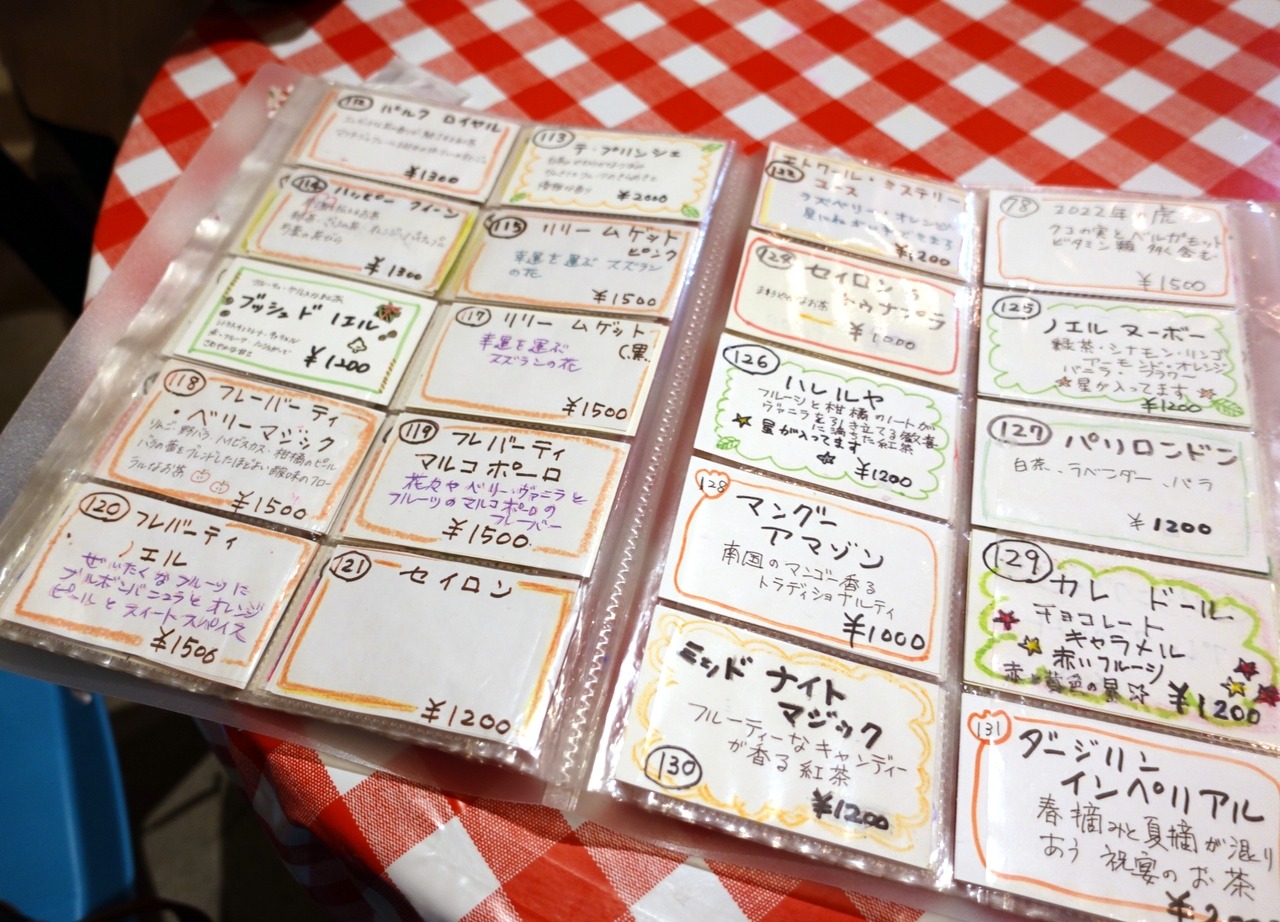 112
パルク ロイヤル
¥1300
113
テ・プリンシェ
¥2000
114
ハッピー クイーン
¥1300
115
リリー ムゲット
ピンク
幸運を運ぶ スズラン
の花
¥1500
ブッシュド ノエル
¥1200
117
リリー ムゲット
幸運を運ぶ
スズランの花
¥1500
118
フレーバーティ
・ベリーマジック
りんご、野バラ、ハイビスカス、柑橘のピール
バラの蕾をブレンドしたほどよい酸味のフロー
ラルなお茶
¥1500
119
フレバーティ
マルコ ポーロ
花々や ベリー、ヴァニラと
フルーツのマルコポーロの
フレーバー
¥1500
120
フレバーティ
ノエル
ぜいたくなフルーツに
ブルボンバニュラとオレンジ
ピールとスィートスパイス
¥1500
121
セイロン
¥1200
エトワール ミステリー
ユース
ラズベリー、オレンジピ
¥1200
78
2022年の虎
クコの実とベルガモット
ビタミン類 多く含む
¥1500
セイロン・ラ
トゥナプラ
¥1000
125
ノエル ヌーボー
緑茶・シナモン・リンゴ
アーモンド・オレンジ
バニラ・フラワー
星が入ってます
¥1200
126
ハレルヤ
フルーツと柑橘のノートが
ヴァニラを引き立てる歓喜
に満ちた紅茶
星が入ってます
¥1200
127
パリロンドン
白茶、ラベンダー、バラ
¥1200
128
マングー
アマゾン
南国のマンゴー香る
トラディショナルティ
¥1000
129
カレ ドール
チョコレート
キャラメル
赤いフルーツ
赤と黄色の星☆
¥1200
ミッド ナイト
マジック
フルーティーなキャンディー
が香る紅茶
130
¥1200
131
ダージリン
インペリアル
春摘みと夏摘が混り
あう 祝宴のお茶